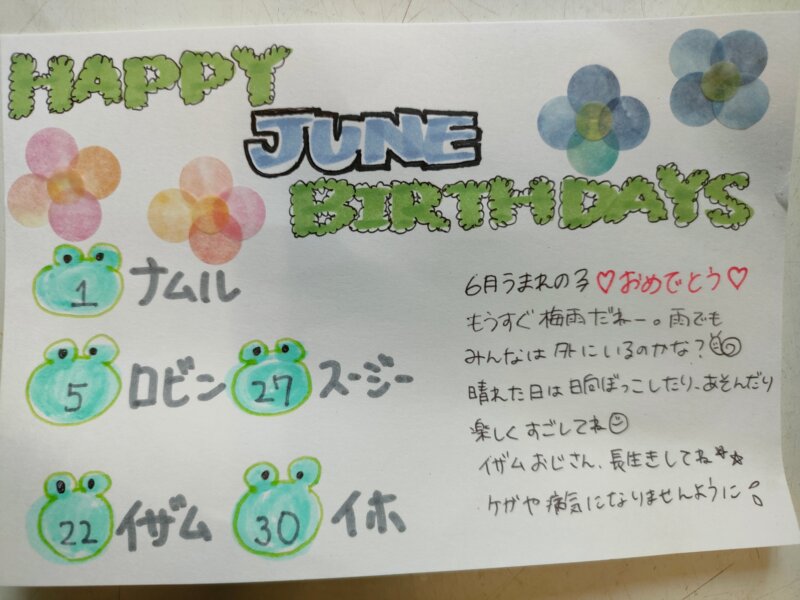 HAPPY
JUNE
BIRTHDAYS
1 ナムル
5 ロビン 27 スージー
22 イザム 30 イホ
6月うまれの子♡おめでとう♡
もうすぐ梅雨だねー。雨でも
みんなは外にいるのかな?
晴れた日は日向ぼっこしたり、あそんだり
楽しくすごしてね☺
イザムおじさん、長生きしてね☆☆
ケガや病気になりませんように